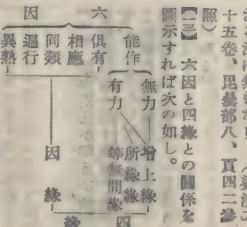 十五卷、毘曇部八、頁四二參
照)
【三】六因と四緣との關係を
圖示すれば次の如し。
六
因
能作
俱有
相應
同類
遍行
異熟
無力
有力
增上緣
所緣緣
等無間緣
因緣
四
緣